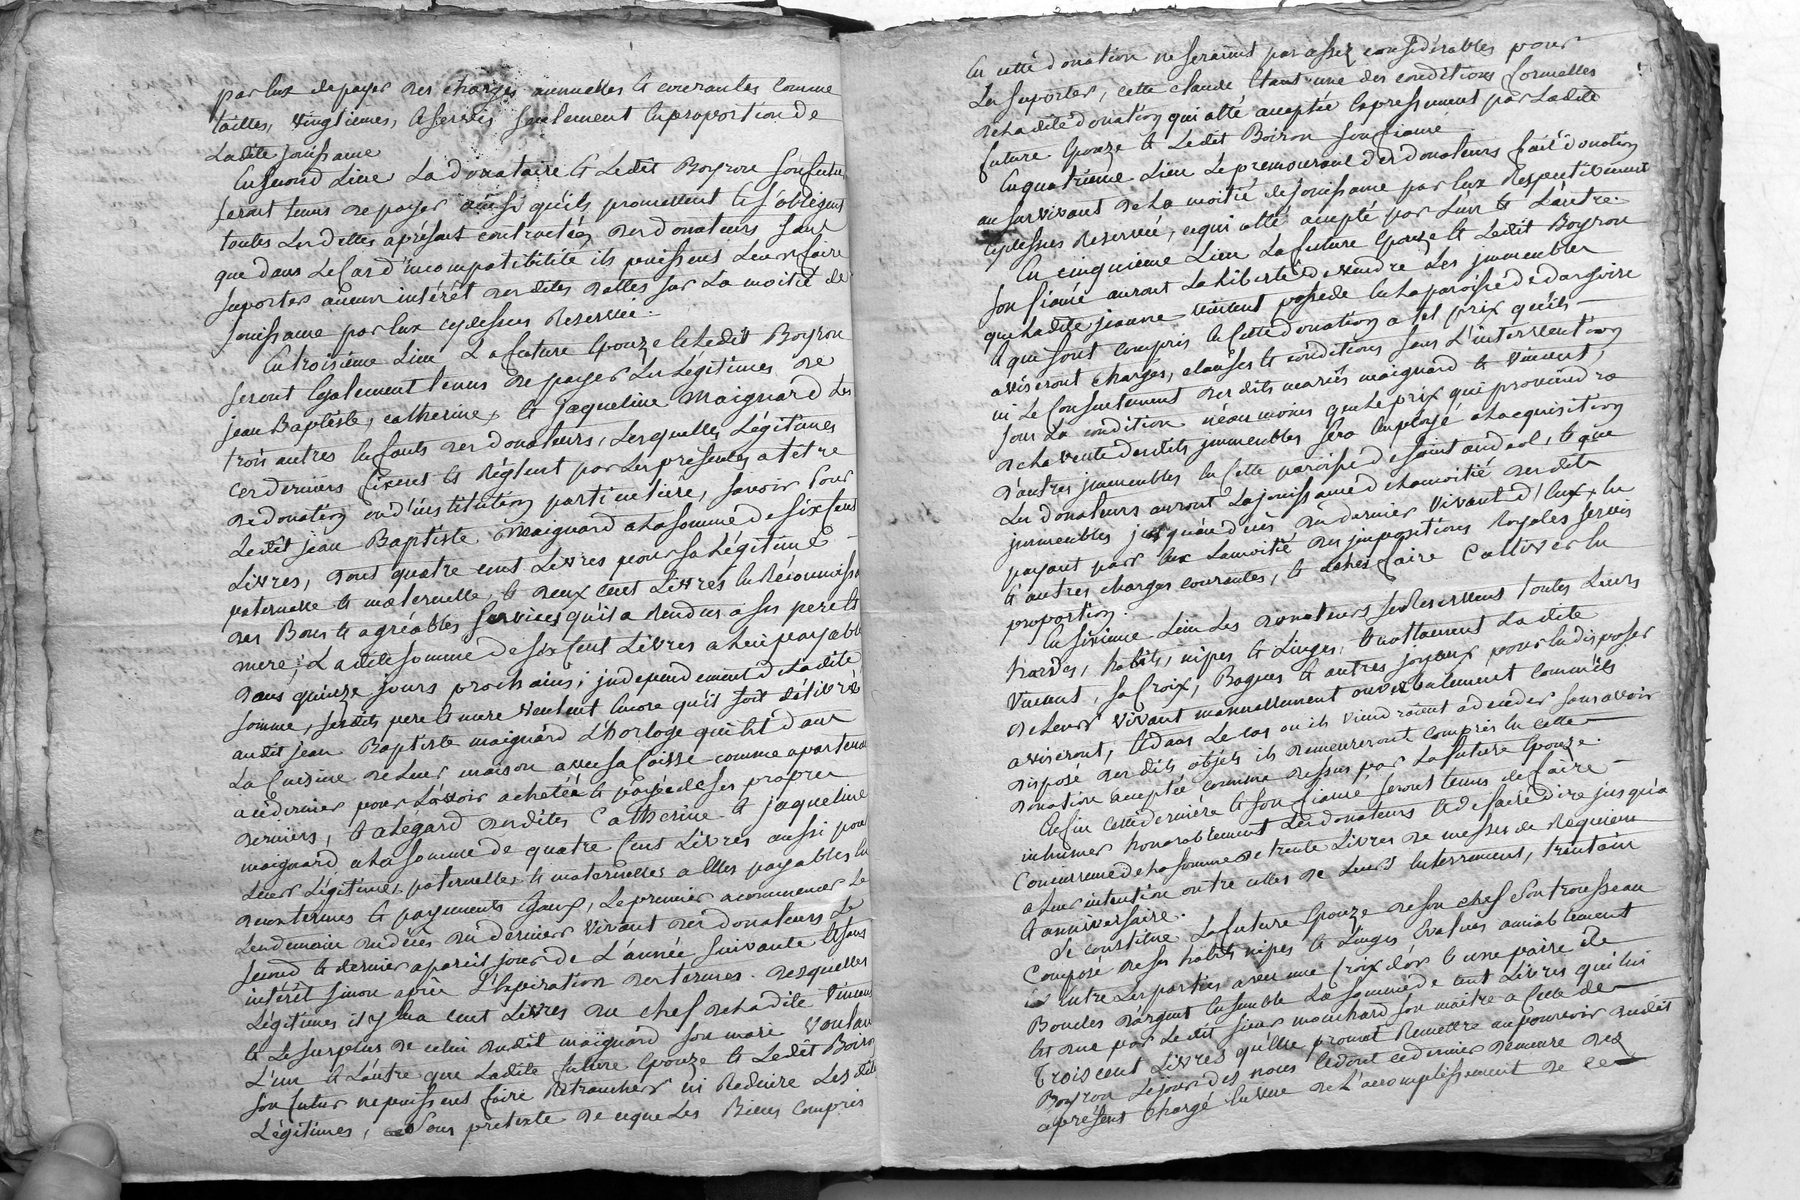 par Eux de payer des charges annuelles et courantes comme
tailles, vingtiemes, et servis seulement en proportion de
Ladite jouissance
En second Lieu La donataire et Ledit Boyron son futur
seront tenus de payer ainsi qu'ils promettent et s'obligent
toutes Les dettes aprésent contractées des donateurs sauf
que dans Le Cas d'incompatibilité ils puissent Leur faire
suporter aucun intérét des dites dettes sur La moitié de
jouissance par Eux cydessus Reservée.
En troisième Lieu La future Epouze et Ledit Boyron
seront Egalement tenus de payer Les Légitimes de
jean Baptiste, catherine, et jaqueline Maignard Les
trois autres Enfants des donateurs, Lesquelles Légitimes
ces derniers fixent et Réglent par Les présentes a titre
de donation ou d'institution particuliére, savoir Pour
Ledit jean Baptiste Maignard a La somme de six Cent
Livres, dont quatre cent Livres pour sa Légitime
paternelle et maternelle, et deux Cent Livres En Réconnoissa
des Bons et agréables services qu'il a Rendus a ses pere et
mere; La dite somme de six Cent Livres a Lui payable
dans quinze jours prochains; jndependement de Ladite
somme, sesdits pere et mere veulent Encore qu'il soit délivré
audit jean Baptiste maignard L'horloge qui Est dans
La Cuisine de Leur maison avec sa Caisse comme apartenant
a ce dernier pour L'avoir achetée et payée de ses propres
deniers, et a Légard desdites Catherine et jaqueline
maignard a La somme de quatre Cent Livres aussi pour
Leur Légitimes paternelles et maternelles a Elles payables En
deux termes et payements Egaux, Le premier a commencer Le
Lendemain du déces du dernier vivant des donateurs Le
second et dernier a pareil jour de L'année suivante et sans
intérét sinon après L'Expiration des termes. desquelles
Légitimes il y En a cent Livres du chef de Ladite Vincent
et Le surplus de celui dudit maignard son mari voulant
L'un et L'autre que Ladite future Epouze et Ledit Boiron
son futur ne puissent faire Retrancher ni Reduire Lesdites
Légitimes, sous prétexte de ce que Les Biens compris
En cette donation ne seraient pas assez considérables pour
Les suporter, cette clause Etant une des conditions formelles
de Ladite donation qui a Eté acceptée Expressement par Ladite
future Epouze et Ledit Boiron son fiancé
En quatrième Lieu Le premourant des donateurs fait donation
au survivant de La moitié de jouissance par Eux Respectivement
cydessus Reservée, ce qui a Eté accepté par L'un et L'autre.
En cinquieme Lieu La future Epouze et Ledit Boyron
son fiancé auront La Liberté de vendre Les jmmeubles
que Ladite jeanne vincent possede En La paroisse de dargoire
et qui sont compris En cette donation a tel prix qu'ils
aviseront charges, clauses et conditions sans L'intervention
ni Le Consentement desdits mariés maignard et vincent,
sous La condition néanmoins que Le prix qui proviendra
de La vente desdits jmmeubles sera Employé a Lacquisition
d'autres jmmeubles En cette paroisse de saint andeol, et que
Les donateurs auront La jouissance de La moitié desdits
jmmeubles jusqu'au déces du dernier vivant d'Eux, En
payant par Eux La moitié des jmpositions Royales servis
et autres charges courantes, et Les faire Cultiver En
proportion.
En sixieme Lieu Les donateurs se Reservent toutes Leurs
hardes, habits, nipes et Linges, et nottament Ladite
Vincent, sa Croix, Bagues et autres joyaux pour En disposer
de Leur vivant manuellement ou verbalement comm'ils
aviseront, Et dans Le cas ou ils viendroient a décéder sans avoir
disposé desdits objets ils demeureront compris En cette
donation acceptée comme dessus par La future Epouze.
Enfin cette derniére et son fiancé seront tenus de faire
inhumer honorablement Les donateurs et de faire dire jusqu'a
Concurrence de La somme de trente Livres de messes de Requiem
a Leur intention outre celles de Leurs Enterrement, trentain
et anniversaire.
Se constitue La future Epouze de son chef son trousseau
Composé de ses habits nipes et Linges Evalués amiablement
Entre Les parties avec une Croix d'or et une paire de
Boucles d'argent Ensemble La somme de cent Livres qui lui
Est due par Ledit sieur mouchard son maitre a Celle de
trois cent Livres qu'Elle promet Remettre au pouvoir dudit
Boyron Le jour des noces Et dont ce dernier demeure des
aprésent Chargé En vue de L'accomplissement de ce